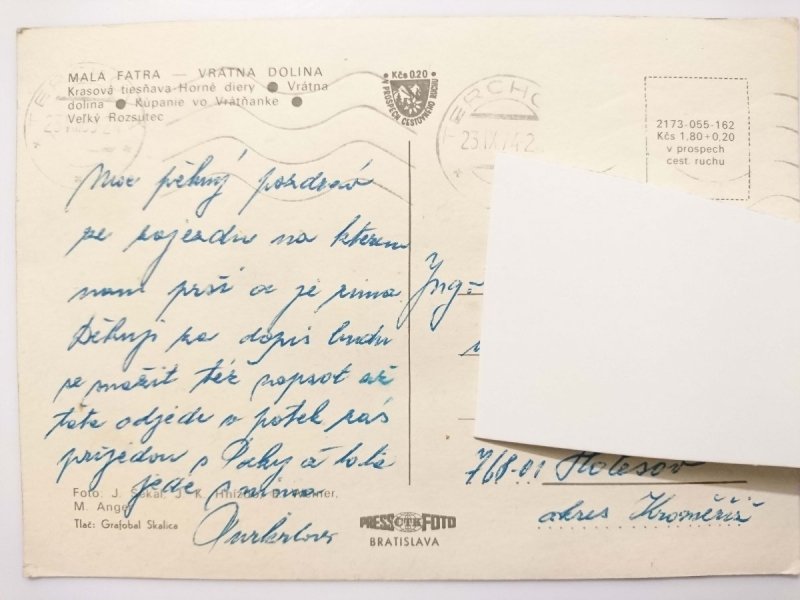 MALÁ FATRA — VRÁTNA DOLINA
Krasová tiesňava Horné diery ● Vrátna
dolina ● Kúpanie vo Vrátňanke ●
Veľký Rozsutec
Kčs 0,20
V PROSPECH CESTOVNÉHO RUCHU
TERCHO
23.IX.74-2
2173-055-162
Kčs 1,80+0,20
v prospech
cest. ruchu
Moc pěkný pozdrav
ze zájezdu na kterém
nám prší a je zima
Děkuji za dopis budu
se snažit též napsat až
táta odjede v pátek zas
přijedou s a táta
jede s nima
Ing.
768-01 Holešov
okres Kroměříž
Foto: J. Sekal, J. K. Hníz
M. Ange
Tlač: Grafobal Skalica
PRESSČTKFOTO
BRATISLAVA